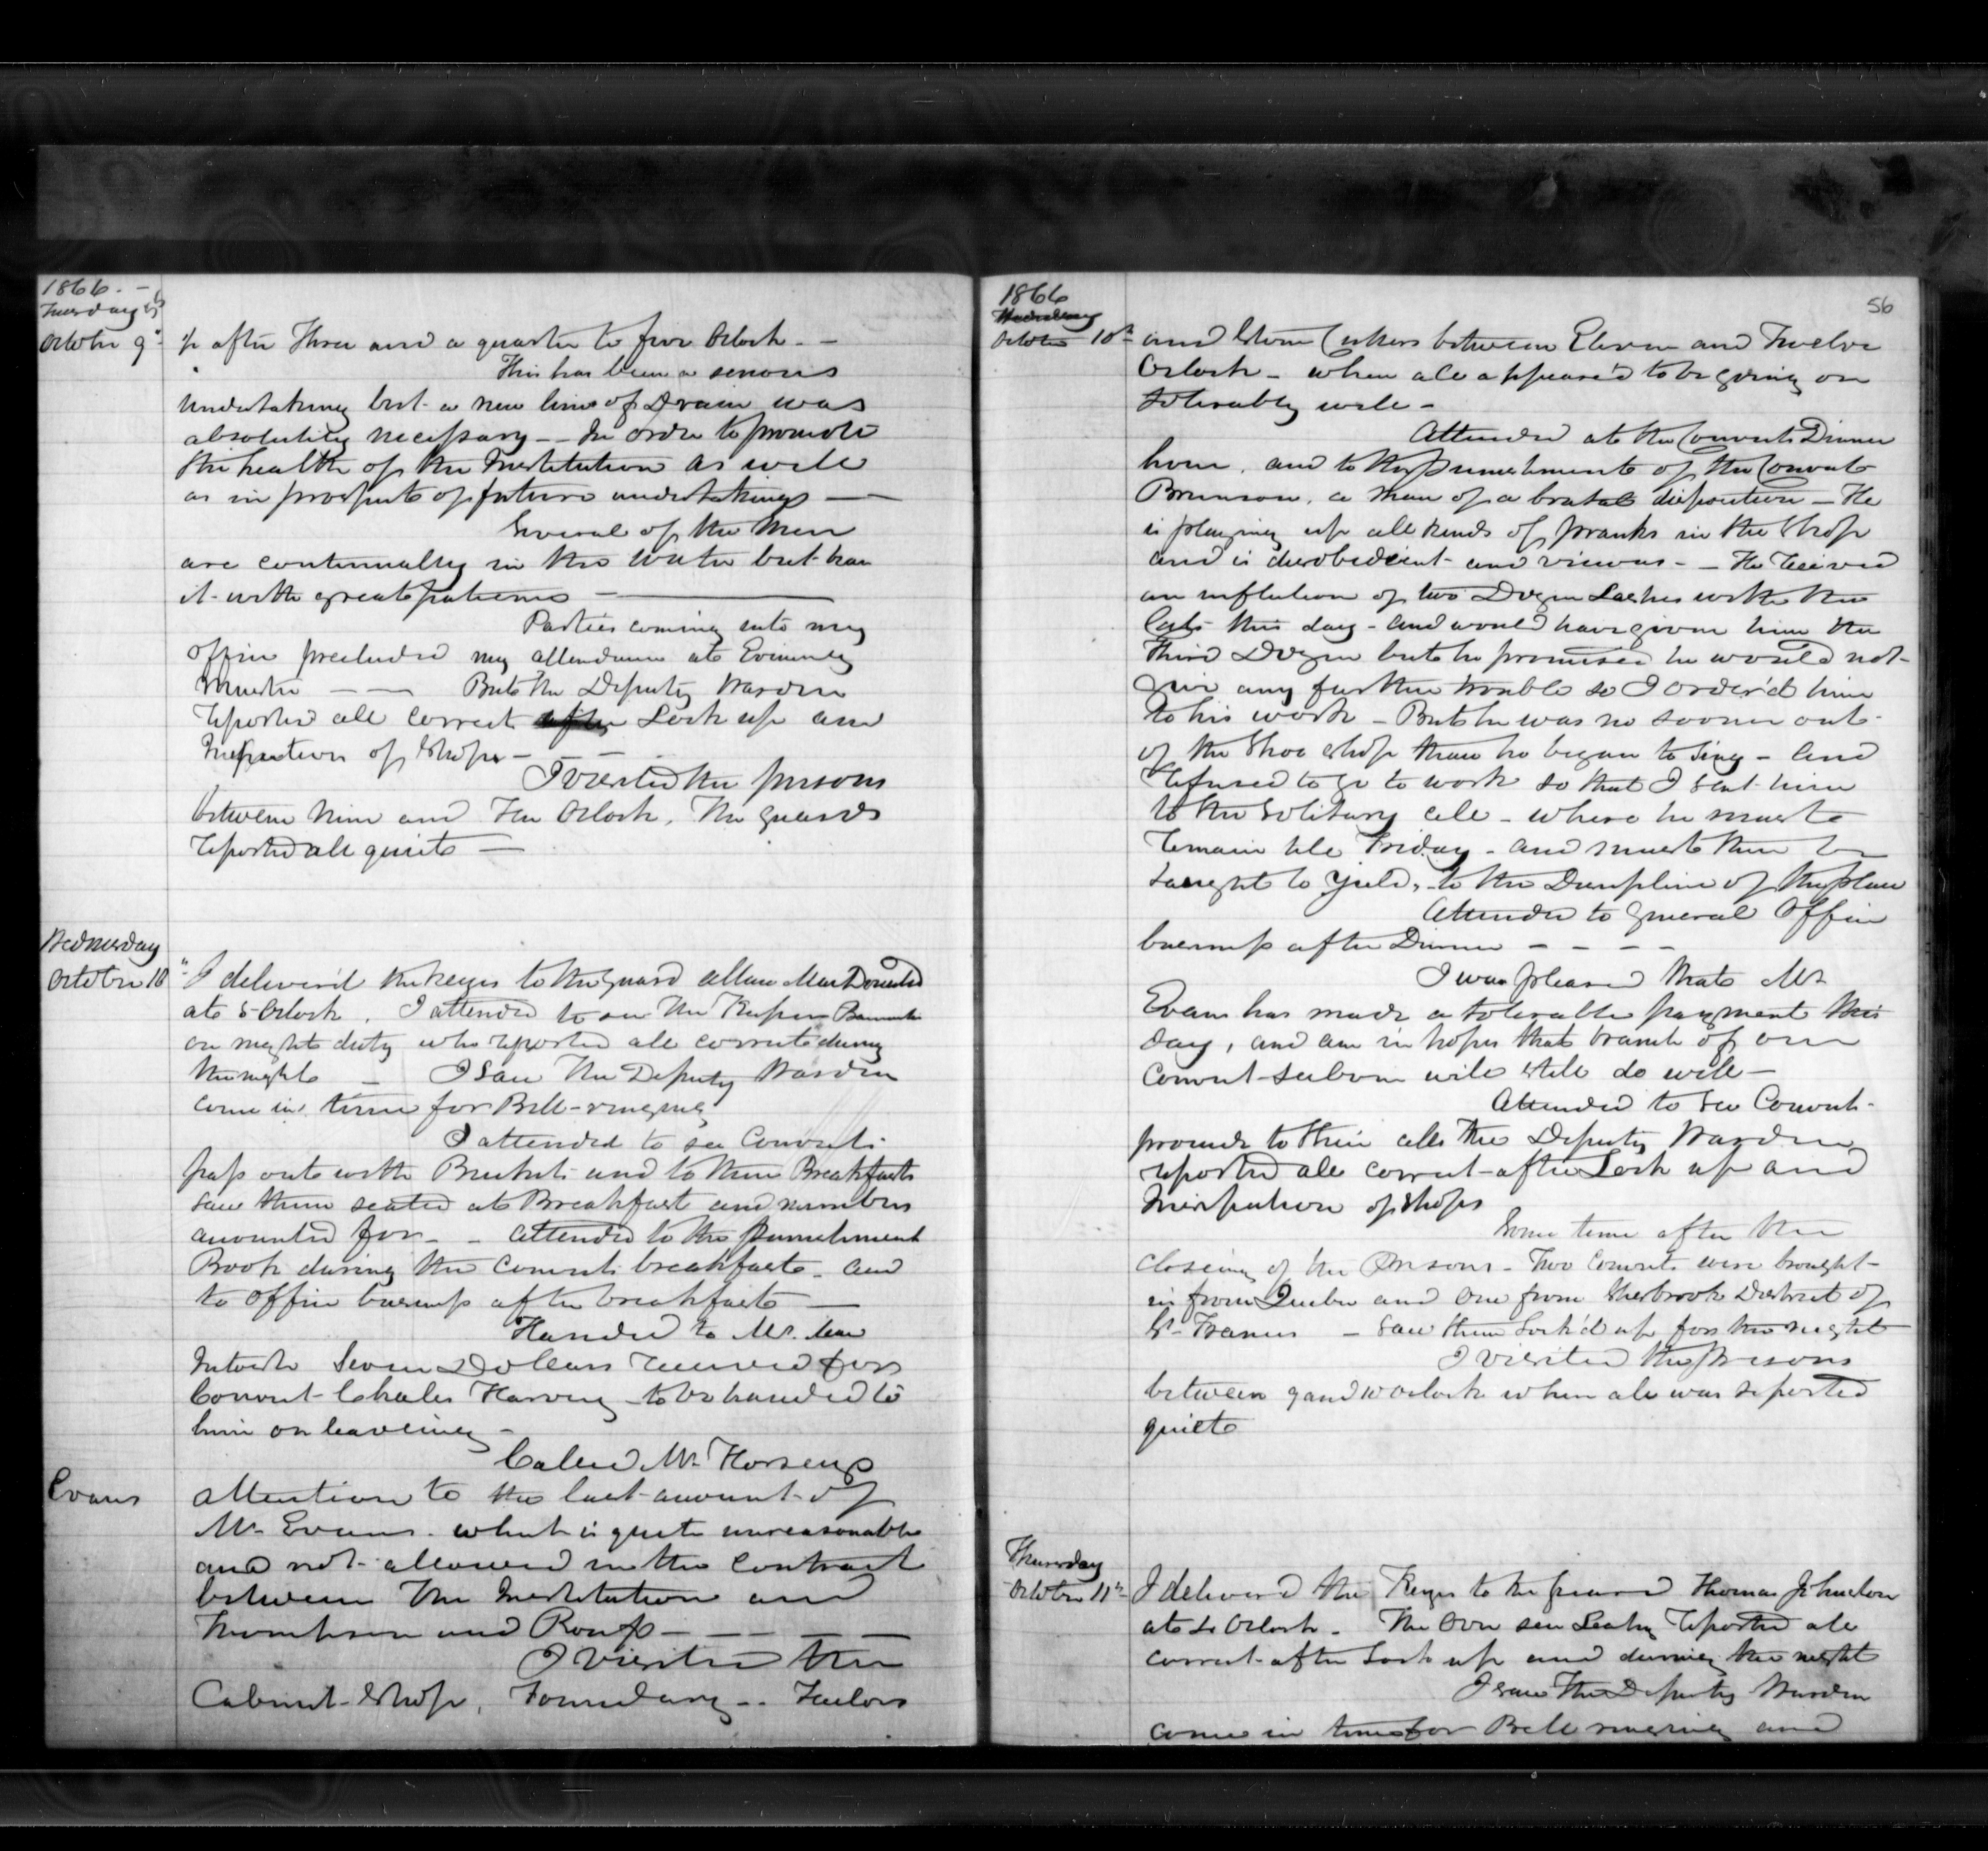 1866.
Tuesday
October 9th
after Three and a quarter to five Oclock. —
This has been a serious
undertaking but a new line of Drain was
absolutely necessary — In order to promote
the health of the Institution as well
as in prospects of future undertakings —
Several of the Men
are continually in the water but bear
it with great patience —
Parties coming into my
office precluded my attendance at Evening
Muster — — But the Deputy Warden
reported all correct after Lock up and
Inspection of Shops — — —
I visited the prisons
between Nine and Ten Oclock. The guards
reported all quiet —
Wednesday
October 10th
I deliver'd the keys to the Guard Allan MacDonald
at 5 Oclock. I attended to see the Keeper
on night duty who reported all correct during
the night — I saw The Deputy Warden
come in time for Bell-ringing
I attended to see Convicts
pass out with Buckets and to their Breakfasts
saw them seated at Breakfast and numbers
accounted for — — attended to the Punishment
Book during the convicts breakfast — and
to office business after breakfast —
Handed to Mr.
Seven Dollars received for
Convict Charles Harvey to be handed to
him on leaveing —
Called Mr. Horseys
Evans
attention to the last account of
Mr. Evans. which is quite unreasonable
and not allowed in the Contract
between The Institution and
Thompson and — — — —
I visited the
Cabinet Shop, Foundary -- Tailors
56
1866
Wednesday
October 10th
and Stone Cutters between Eleven and Twelve
Oclock — when all appeared to be going on
tolerably well —
Attended at the Convicts Dinner
hour, and to the punishment of the Convict
Brunson, a man of a brutal disposition — He
is playing up all kinds of pranks in the Shop
and is disobedient and vicious — — He received
an infliction of two Dozen Lashes with the
Cats this day — and would have given him the
Third Dozen but he promised he would not
give any further trouble so I order'd him
to his work — But he was no sooner out
of the Shoe Shop than he began to sing — and
refused to go to work so that I sent him
to the Solitary cell — where he must
remain till Friday — and must then be
taught to yield, to the Discipline of the place
Attended to General Office
business after Dinner — — — —
I was pleased that Mr.
Evans has made a tolerable payment this
day, and am in hopes that branch of our
convict labour will still do well —
Attended to see Convicts
proceed to their cells The Deputy Warden
reported all correct after Lock up and
Inspection of Shops
Some time after the
closeing of the Prisons — Two Convicts were brought
in from Quebec and one from Sherbrook District of
St. Francis — saw them Lock'd up for the night
I visited the prisons
between 9 and 10 oclock when all was reported
quiet
Thursday
October 11th
I deliver'd the Keys to the guard Thomas Johnston
at 5 Oclock — The Over seer Leahy reported all
correct after Lock up and during the night
I saw The Deputy Warden
come in time for Bell ringing and